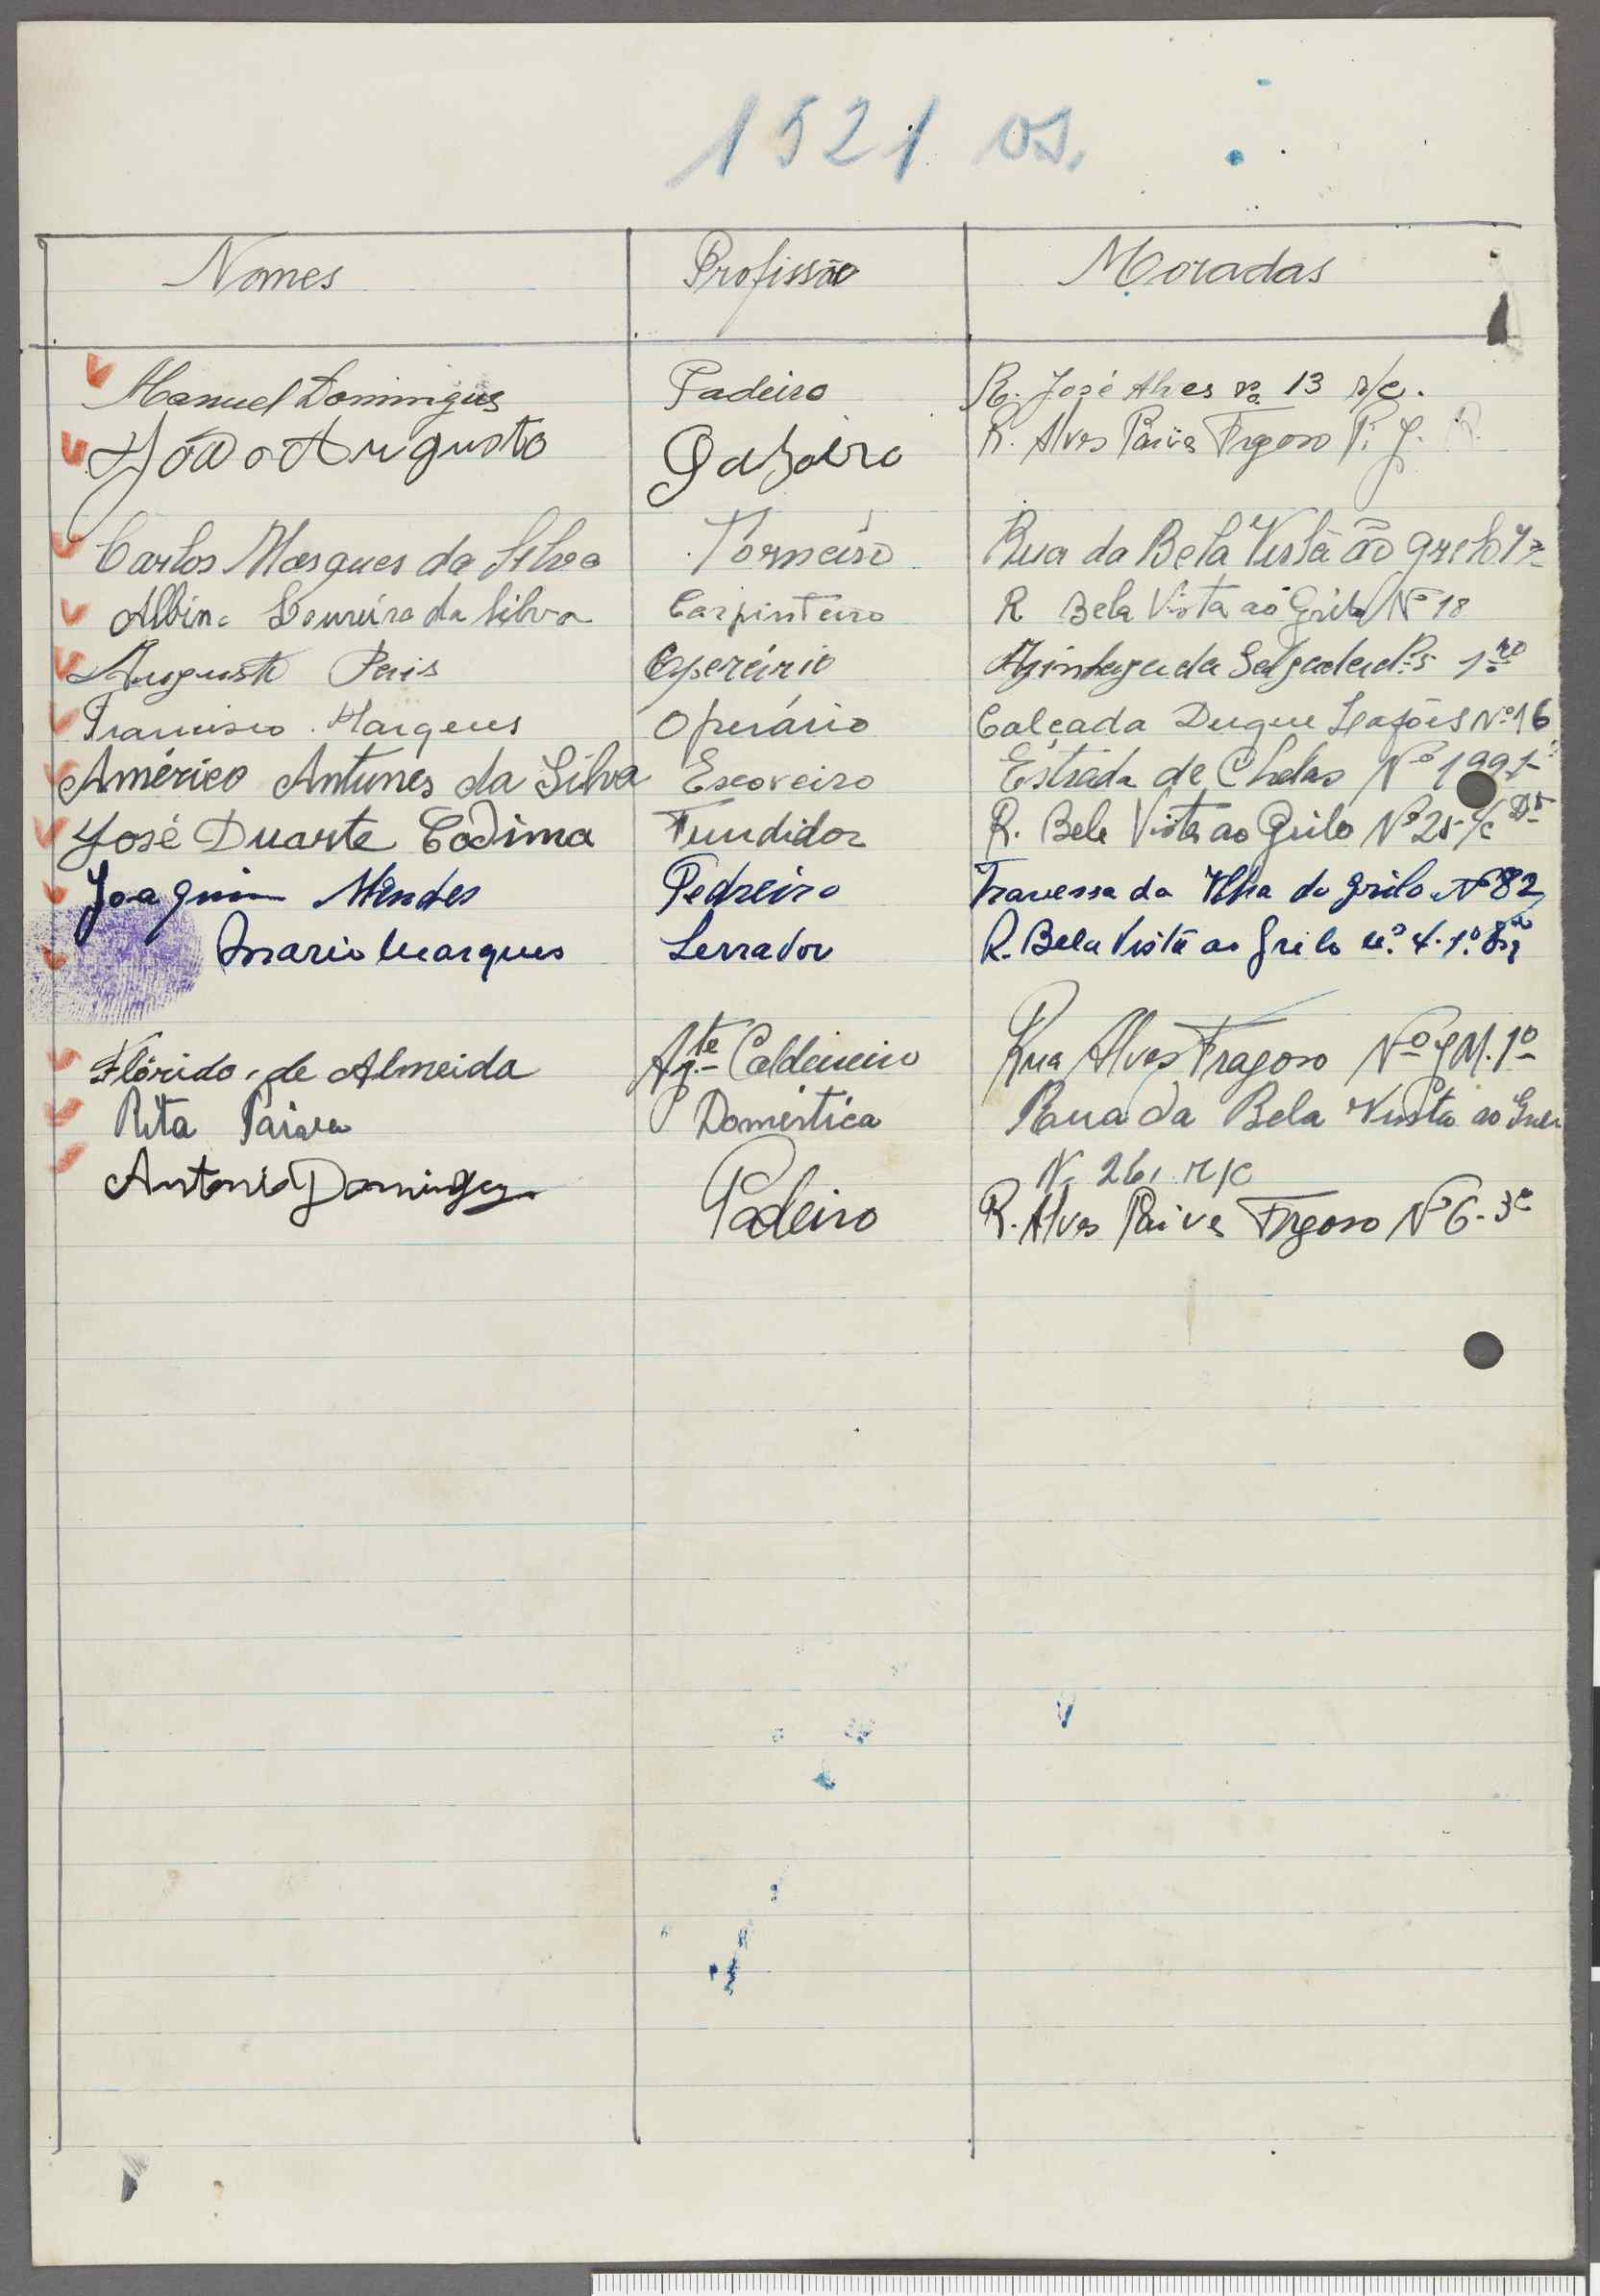 1521 OS.
Nomes Profissão Moradas
Manuel Domingus Padeiro R. José Alves nº 13 r/c.
João Augusto Gazoiro R. Alves Paiva Frgoso P. J. R.
Carlos Marques da Silva Torneiro Rua da Bela Vista ão grilo
Albino Loureiro da Silva Carpinteiro R Bela Vista aó Grilo Nº 18
Augusto Pais Operário
Francisco Marques Operário Calçada Duque Lafões Nº 16
Américo Antunes da Silva Escoveiro Estrada de Chelas Nº 199
José Duarte Codima Fundidor R. Bela Vista ao Grilo Nº 25 r/c Dt
Joaquim Mendes Pedreiro Travessa da Ilha do Grilo Nº 82
Mario Marques Serrador R. Bela Vista ao Grilo nº 4. 1º
Flórido de Almeida Ajte Caldeireiro Rua Alves Fragoso Nº J M. 1º
Rita Paiva Doméstica Rua da Bela Vista ao
N. 26, r/c
Antonio Domingos Padeiro R. Alves Paiva Frgoso Nº 6-3º